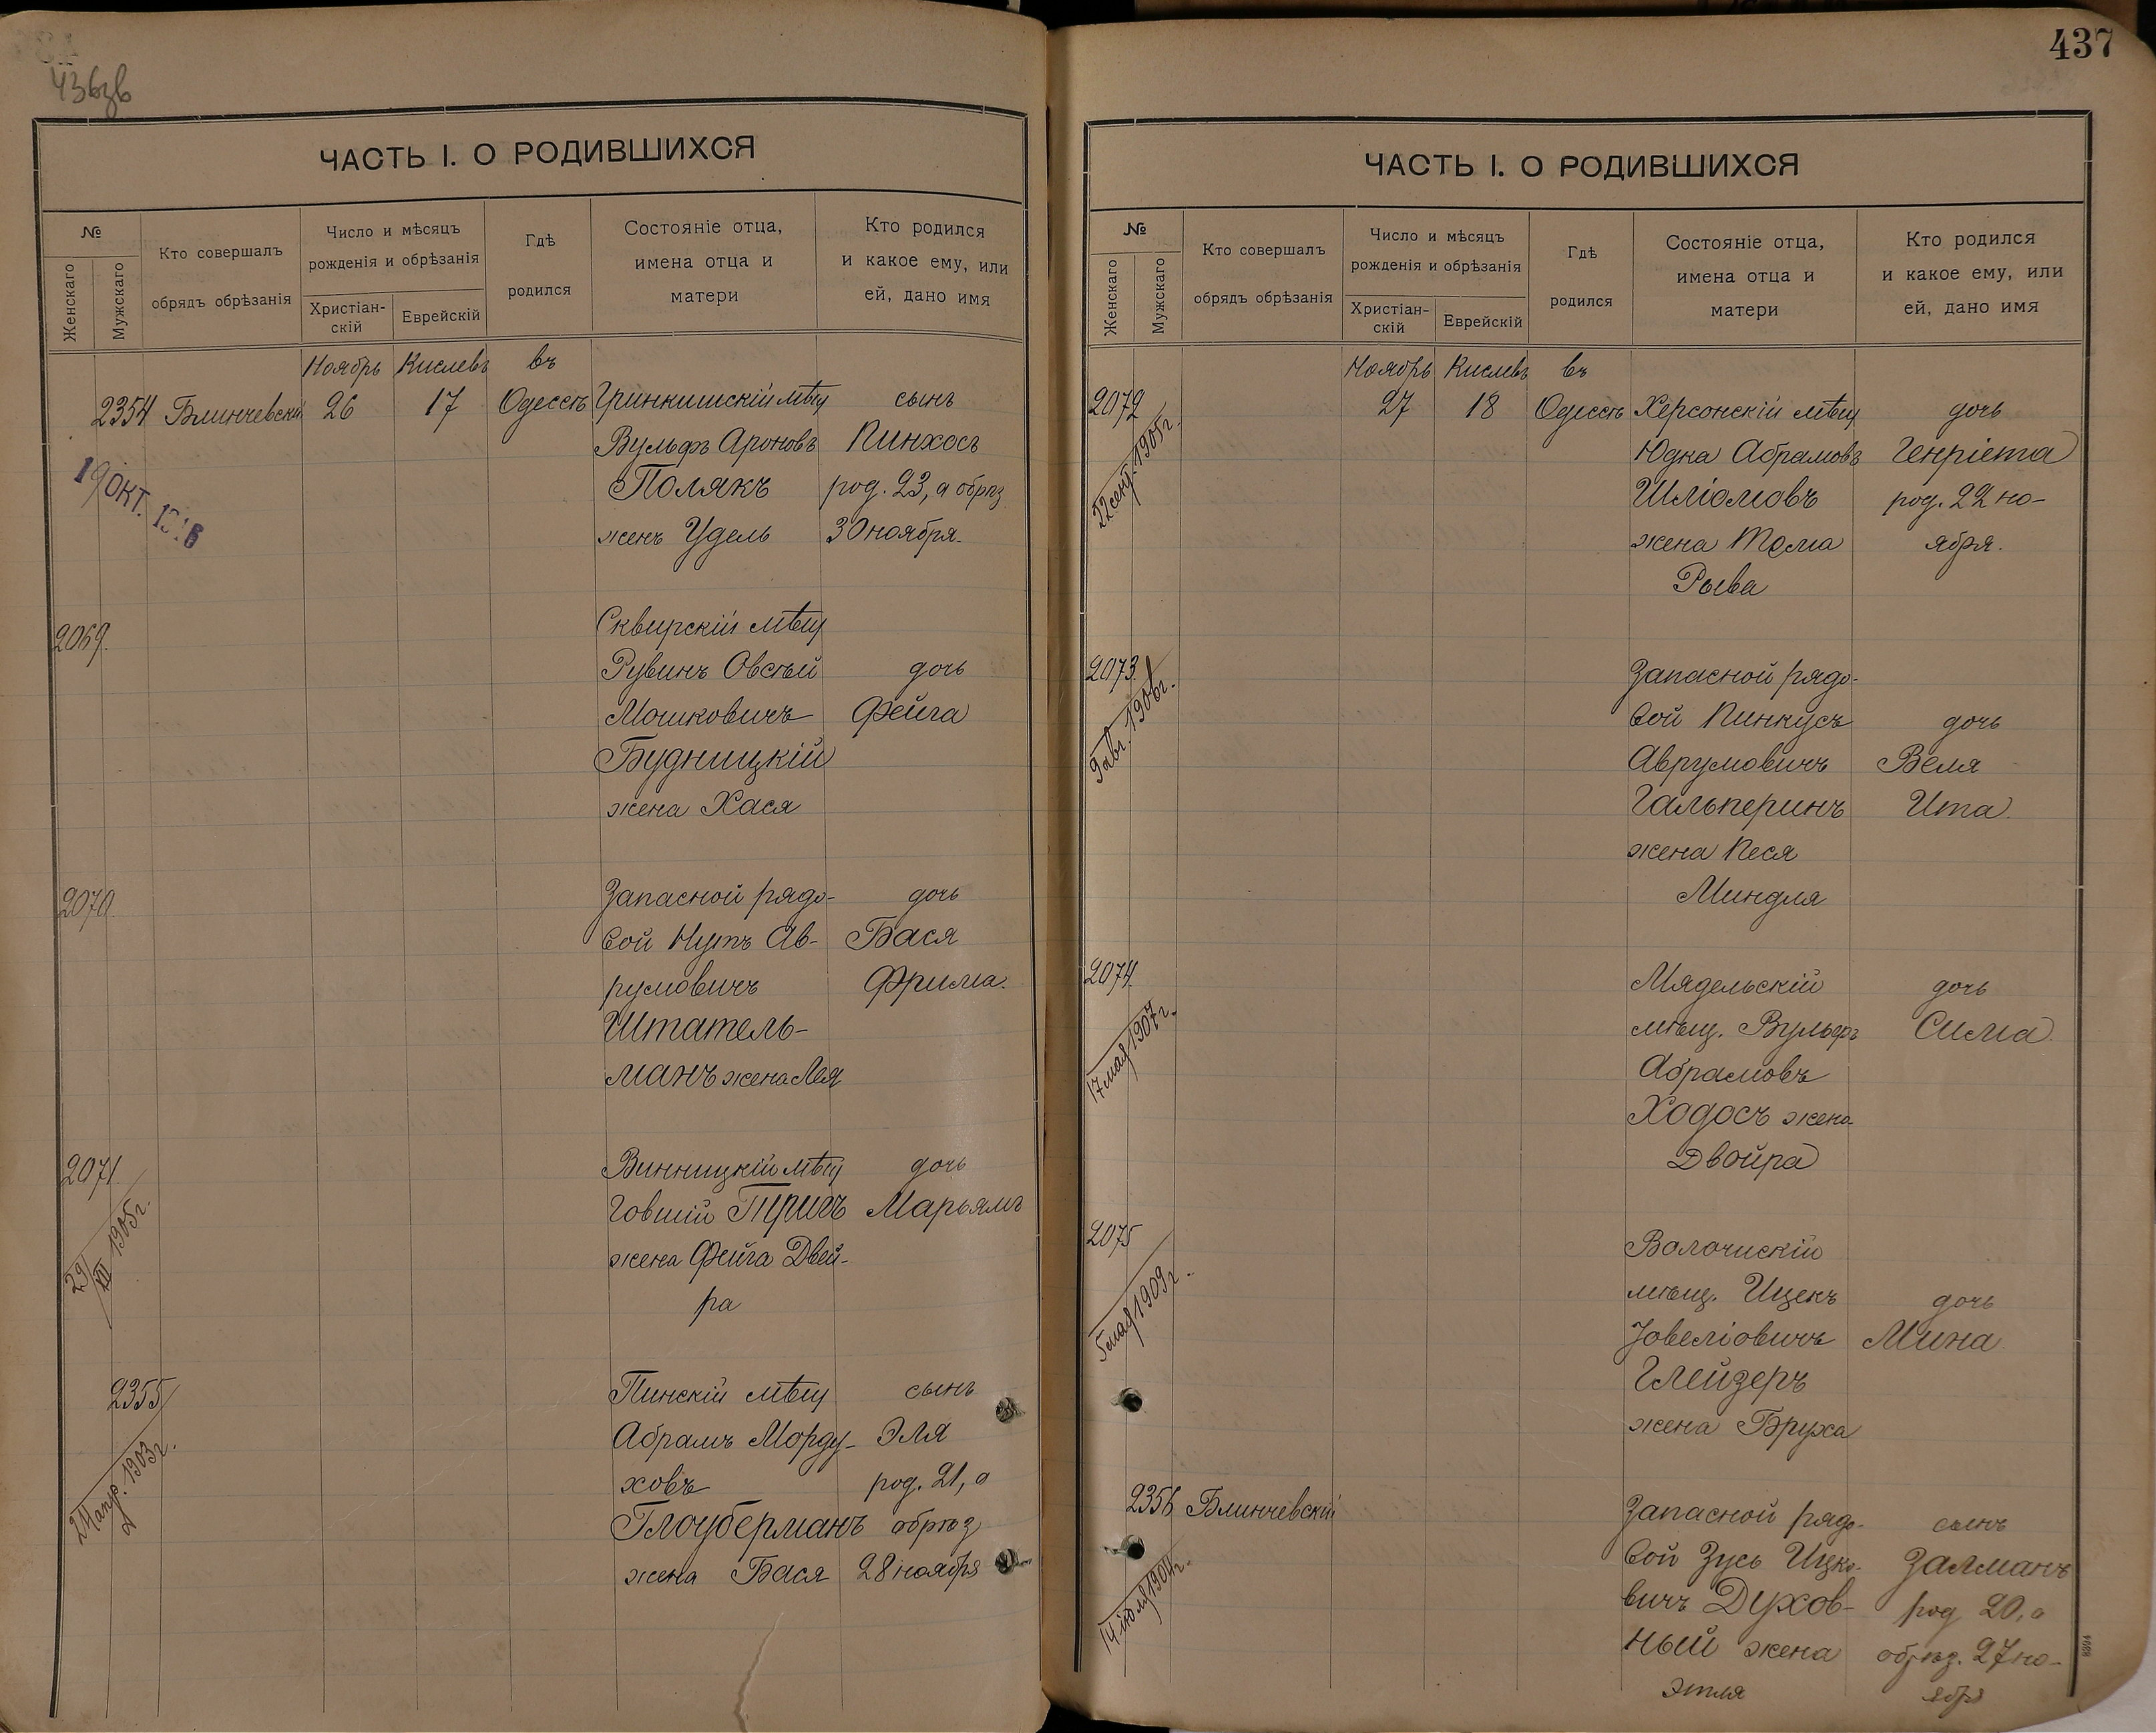 436зв
ЧАСТЬ I. О РОДИВШИХСЯ
№
Женскаго
Мужскаго
Кто совершалъ
обрядъ обрѣзанія
Число и мѣсяцъ
рожденія и обрѣзанія
Христіан-
скій
Еврейскій
Гдѣ
родился
Состояніе отца,
имена отца и
матери
Кто родился
и какое ему, или
ей, дано имя
Ноябрь Кислевъ въ
2354 Блинчевскій 26 17 Одессѣ Гринкишскій мѣщ сынъ
Вульфъ Ароновъ Пинхосъ
Полякъ род. 23, а обрѣз
женъ Удель 30 ноября.
19 ОКТ.
2069. Сквирскій мѣщ
Рувинъ Овсѣй дочь
Мошковичъ Фейга
Будницкій
жена Хася
2070. Запасной рядо- дочь
вой Нутъ Ав- Бася
румовичъ Фрима.
Штатель-
манъ жена Лея
2071. Винницкій мѣщ дочь
Говшій Тригъ Марьямъ
жена Фейга Двей-
ра
29/XII 1905г.
2355 Пинскій мѣщ сынъ
Абрамъ Морду- Эля
ховъ род. 21, а
Глоуберманъ обрѣз
жена Бася 28 ноября
1903г.
437
ЧАСТЬ I. О РОДИВШИХСЯ
№
Женскаго
Мужскаго
Кто совершалъ
обрядъ обрѣзанія
Число и мѣсяцъ
рожденія и обрѣзанія
Христіан-
скій
Еврейскій
Гдѣ
родился
Состояніе отца,
имена отца и
матери
Кто родился
и какое ему, или
ей, дано имя
Ноябрь Кислевъ въ
2072 27 18 Одессѣ Херсонскій мѣщ дочь
Юдка Абрамовъ Генріета
Шліомовъ род. 22 но-
жена Тема ября.
Рыва
22 сент. 1905г.
2073. Запасной рядо-
вой Пинкусъ дочь
Аврумовичъ Веля
Гальперинъ Ита.
жена Песя
Миндля
9 авг. 1906г.
2074. Мядельскій дочь
мѣщ. Вульфъ Сима.
Абрамовъ
Ходосъ жена
Двойра
17 мая 1907г.
2075 Волочискій
мѣщ. Ицекъ дочь
Іовеліовичъ Мина.
Глейзеръ
жена Бруха
5 мая 1909г.
2356 Блинчевскій Запасной рядо- сынъ
вой Зусь Ицко- Залманъ
вичъ Духов- род 20, а
ный жена обрѣз. 27 но-
Этля ября
14 іюля 1904г.